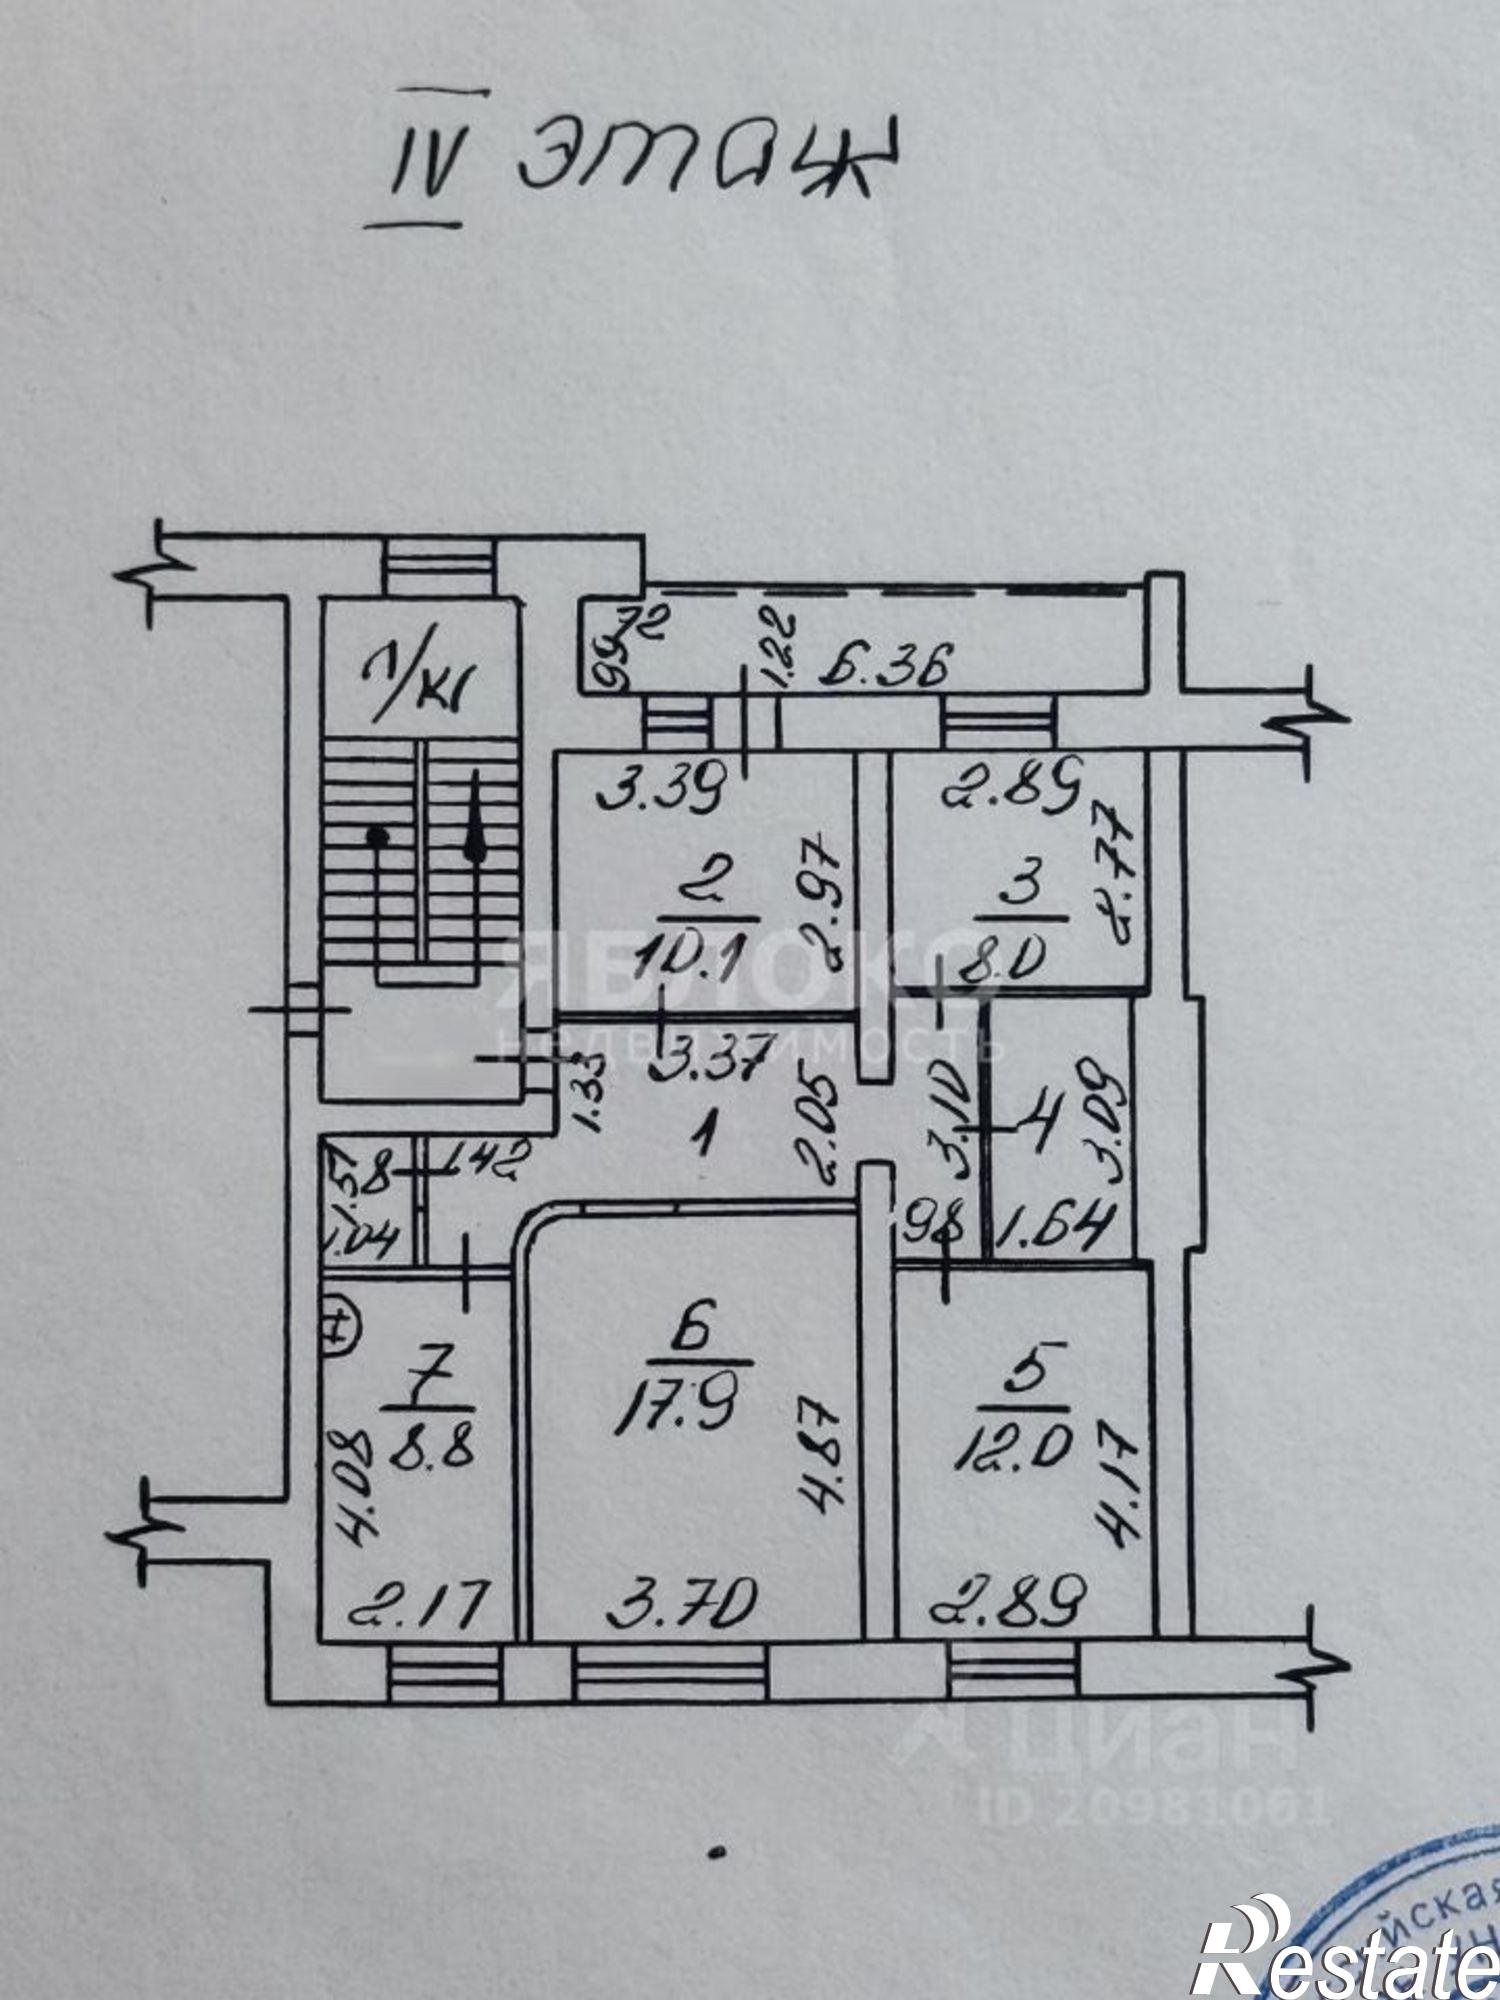 IV этаж
л/кл
99
72
1.22
6.36
3.39
2.89
2
10.1
2.97
3
8.0
2.77
ЯБЛОКО
недвижимость
3.37
1.33
1
2.05
3.10
4
3.09
1.57
8
1.42
1.04
98
1.64
Н
7
8.8
4.08
2.17
6
17.9
4.87
3.70
5
12.0
4.17
2.89
циан
ID 20981061
Restate